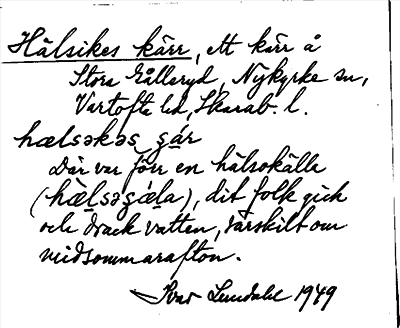 Hälsikes kärr, ett kärr å
Stora Gälleryd, Nykyrke sn,
Vartofta hd, Skarab. l.
hælsəkəs ɕár
Där var förr en hälsokälla
(hæ̀lsəɕǽla), dit folk gick
och drack vatten, särskilt om
midsommarafton.
Ivar Lundahl 1949